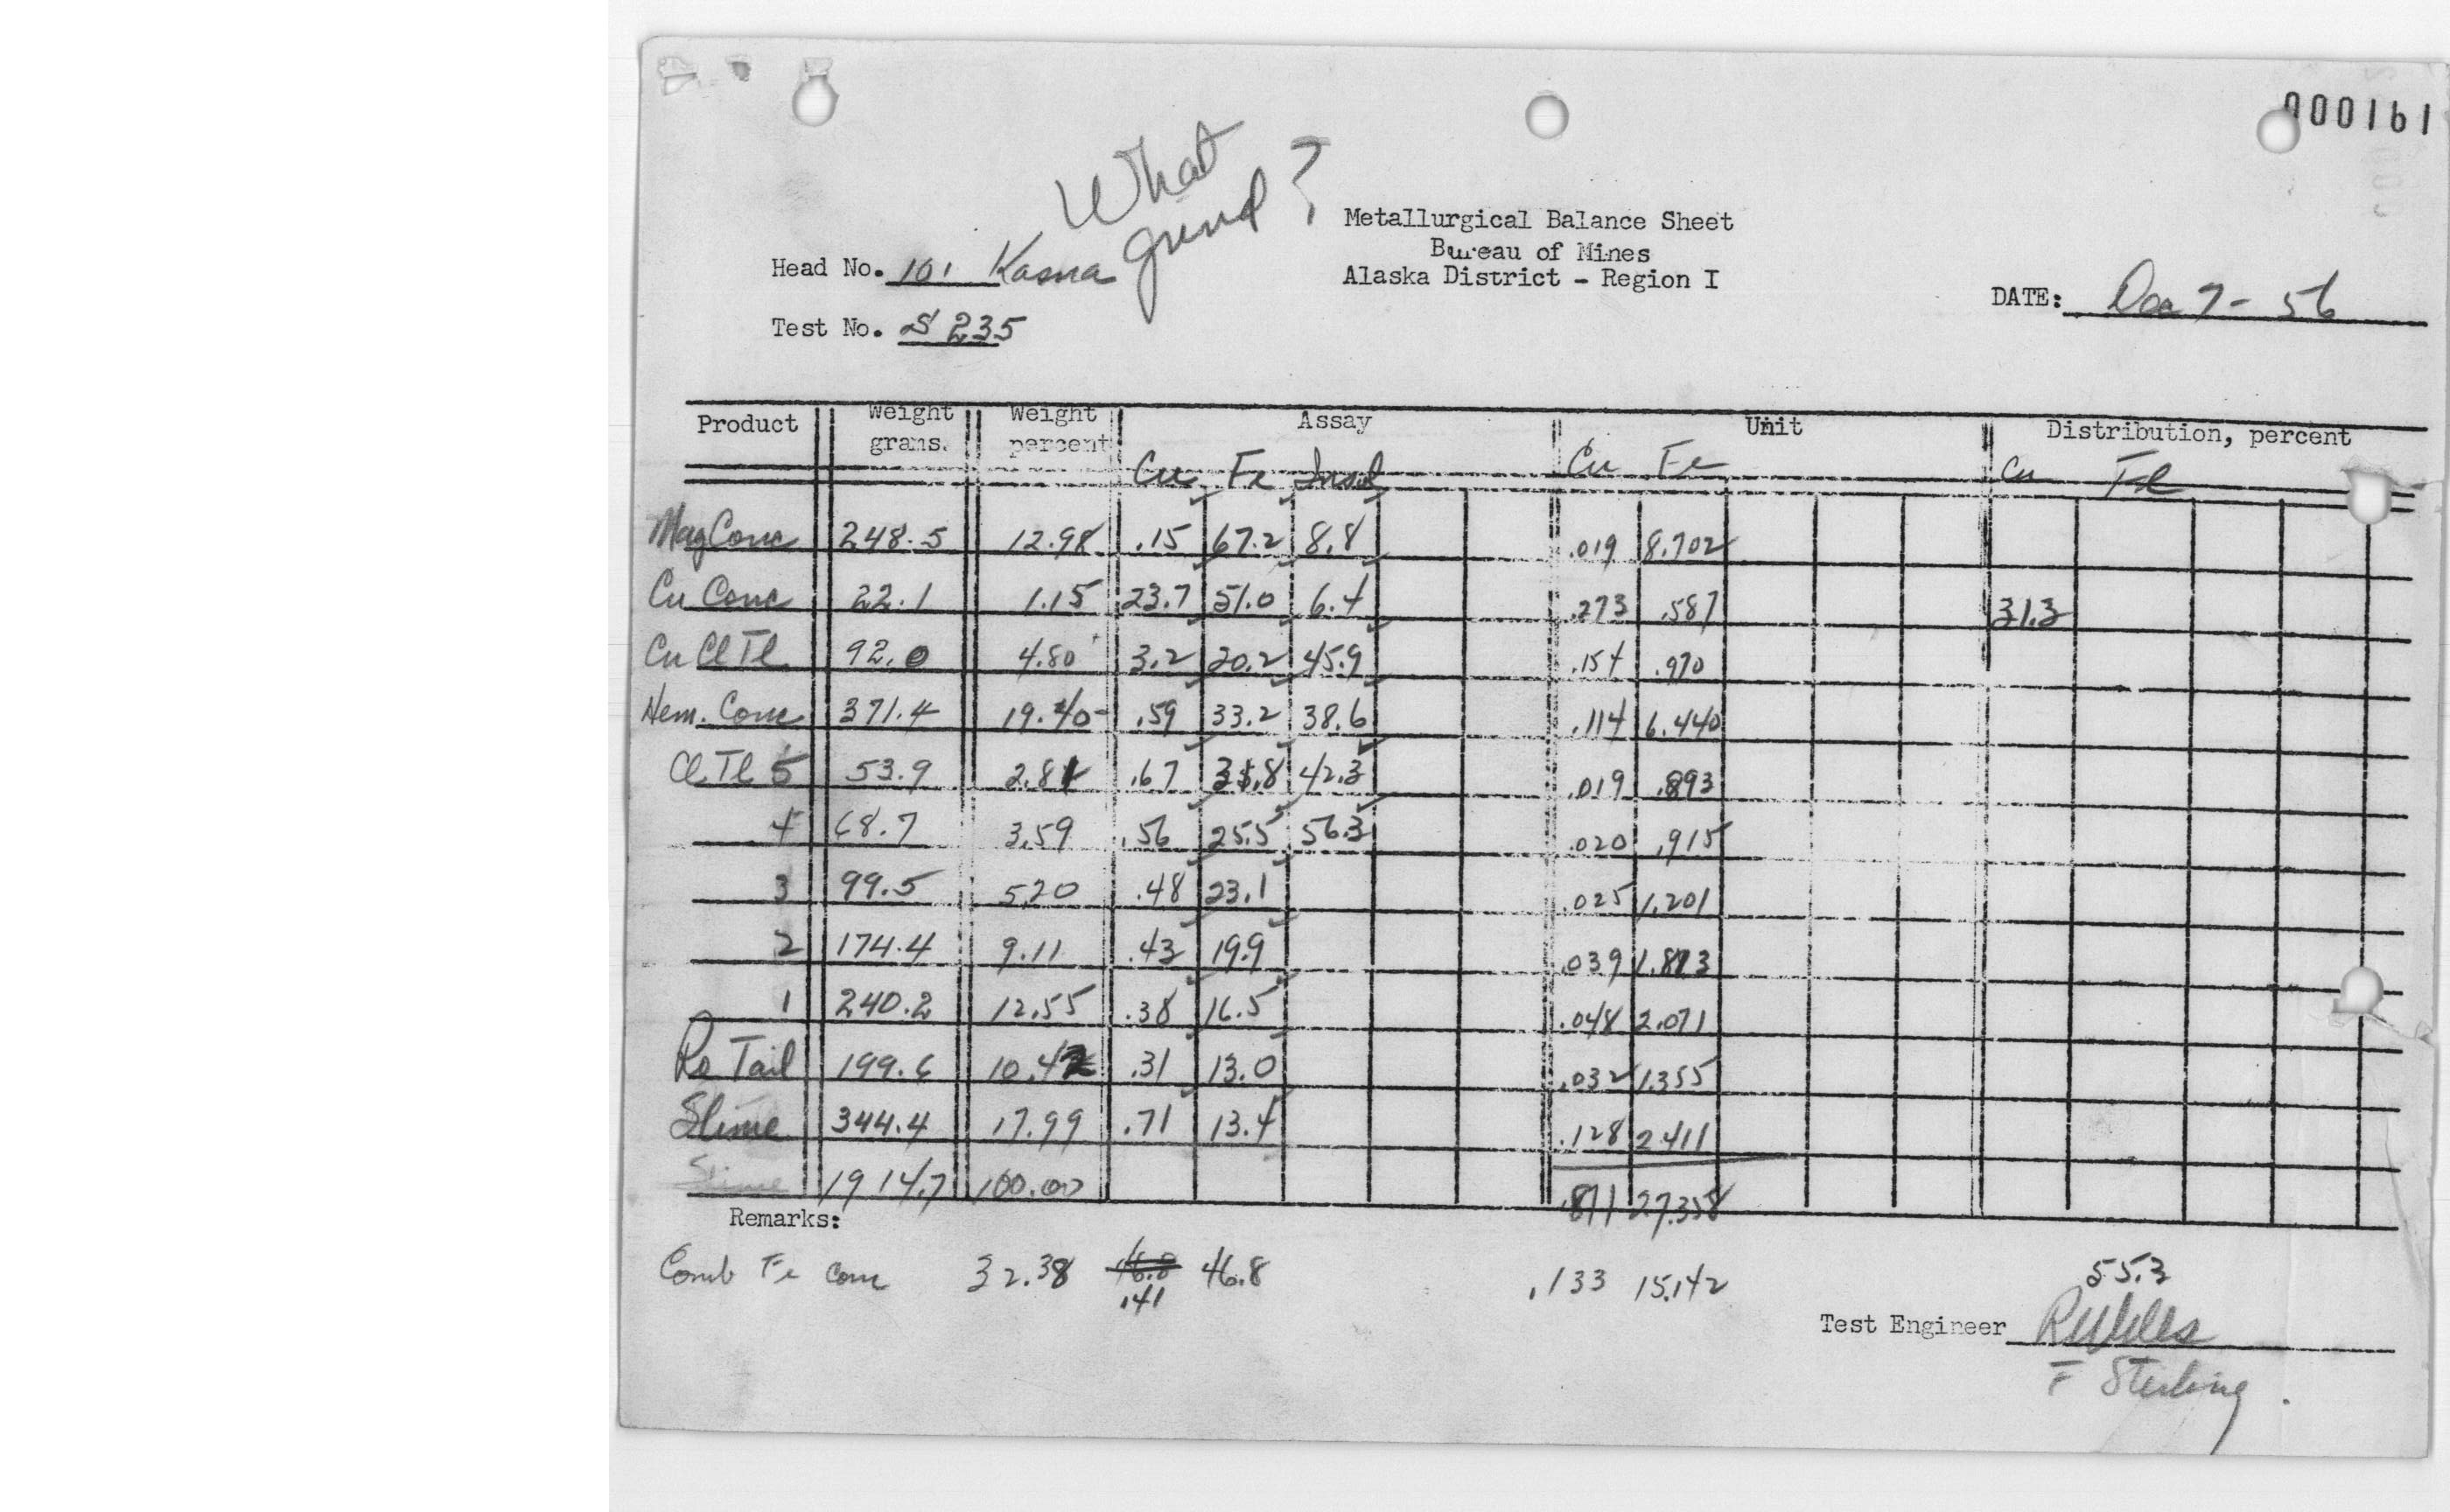 000161
What
grind?
Metallurgical Balance Sheet
Bureau of Mines
Alaska District - Region I
Head No. 101 Kasna
DATE: Dec 7 - 56
Test No. S 235
Product Weight grams. Weight percent Assay Unit Distribution, percent
Cu Fe Insol Cu Fe Cu Fe
Mag Conc 248.5 12.98 .15 67.2 8.8 .019 8.702
Cu Conc 22.1 1.15 23.7 51.0 6.4 .273 .587 31.3
Cu Cl Tl 92.0 4.80 3.2 20.2 45.9 .154 .970
Hem. Conc 371.4 19.40 .59 33.2 38.6 .114 6.440
Cl Tl 5 53.9 2.81 .67 31.8 42.3 .019 .893
4 68.7 3.59 .56 25.5 56.3 .020 .915
3 99.5 5.20 .48 23.1 .025 1.201
2 174.4 9.11 .43 19.9 .039 1.813
1 240.2 12.55 .38 16.5 .048 2.071
Ro Tail 199.6 10.42 .31 13.0 .032 1.355
Slime 344.4 17.99 .71 13.4 .128 2.411
Slime 1914.7 100.00 .871 27.358
Remarks:
Comb Fe conc 32.38 46.8 46.8 .133 15.142 55.3
.41
Test Engineer RWells
F Sterling